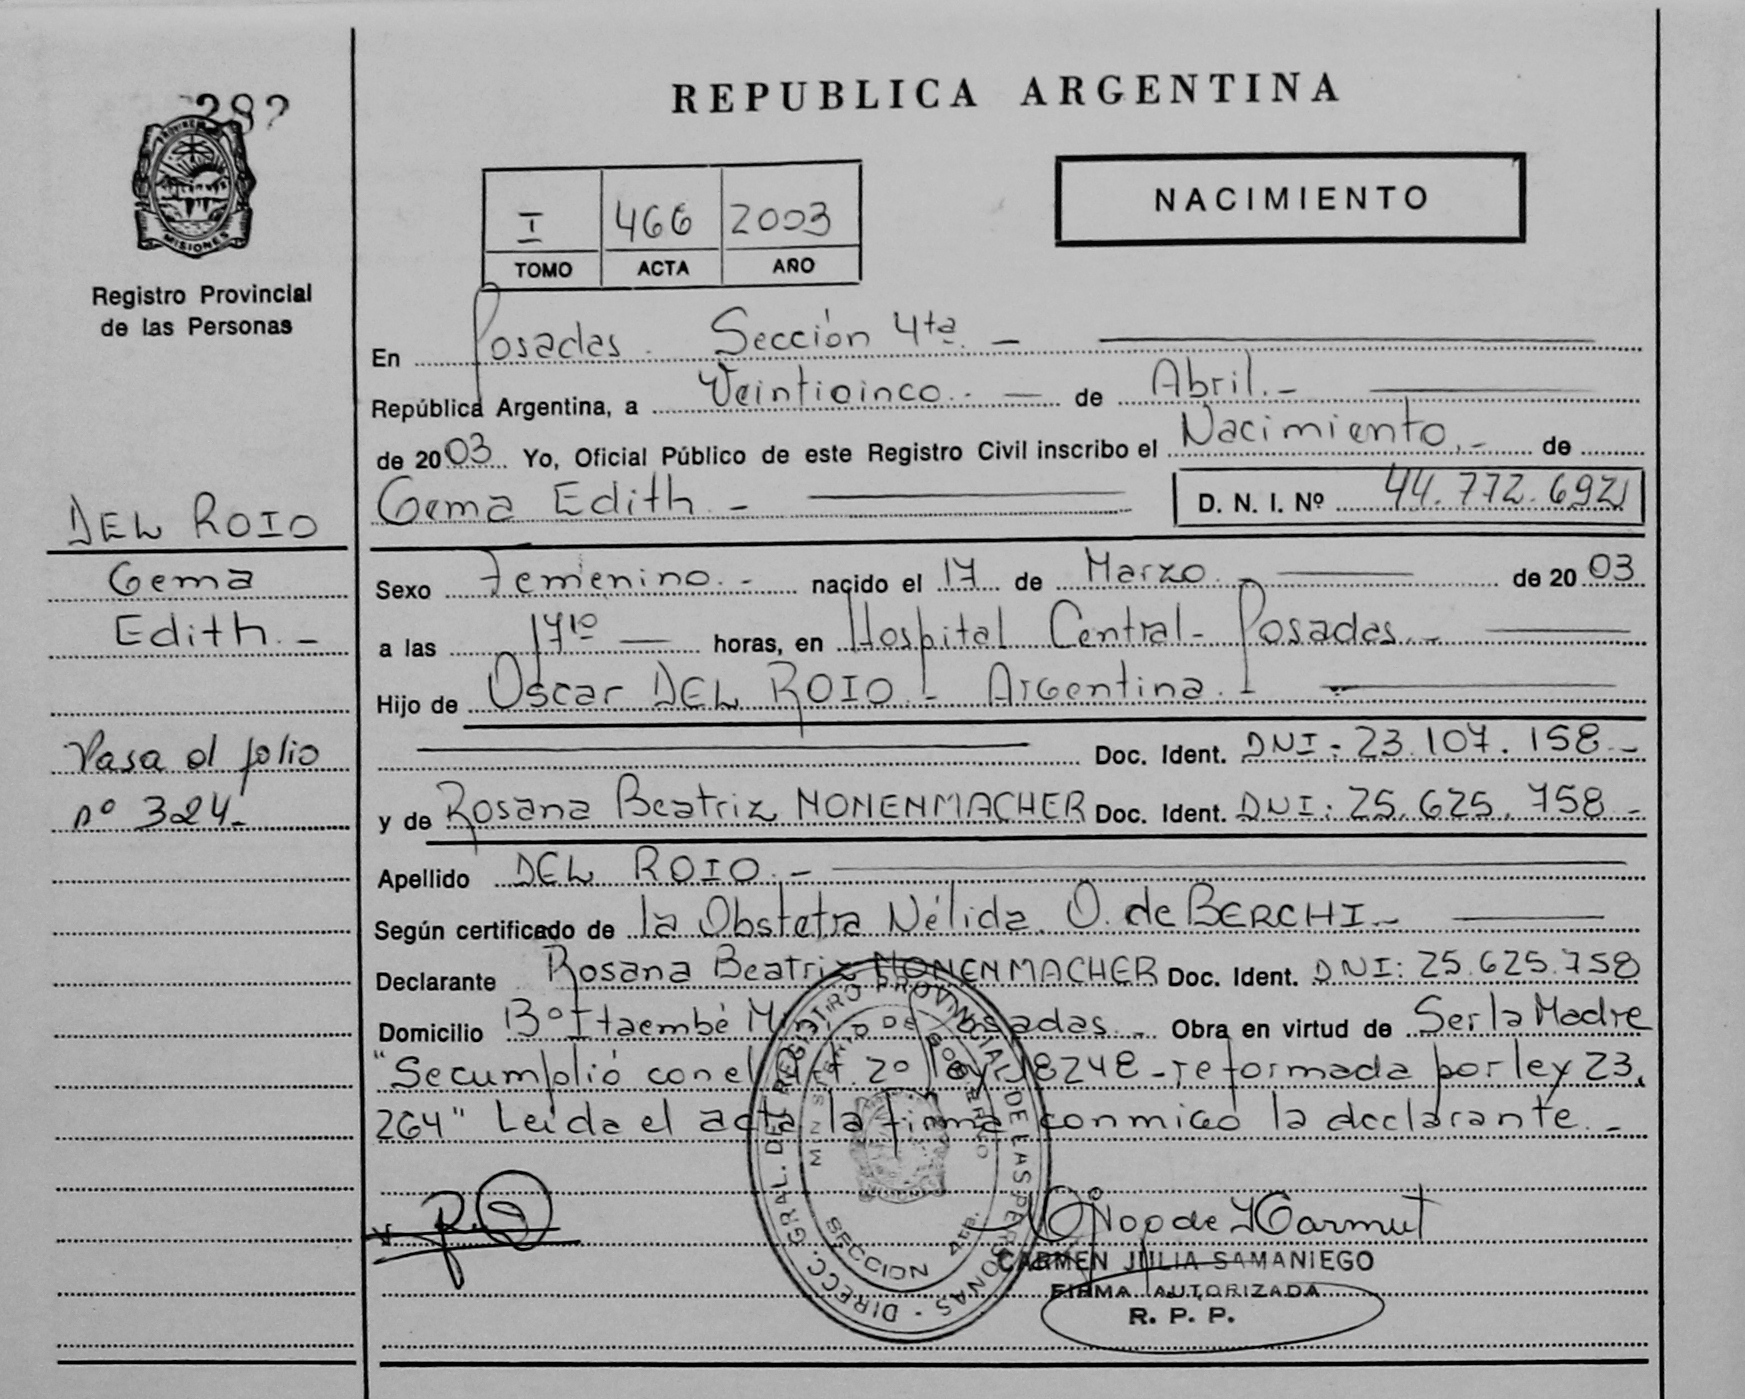 282
REPUBLICA ARGENTINA
MISIONES
Registro Provincial
de las Personas
I 466 2003
TOMO ACTA AÑO
NACIMIENTO
En Posadas. Sección 4ta. -
República Argentina, a Veinticinco. - de Abril. -
de 2003. Yo, Oficial Público de este Registro Civil inscribo el Nacimiento. - de
Gema Edith. - D. N. I. Nº 44.772.692
DEL ROIO
Gema
Edith. -
Pasa al folio
nº 324-
Sexo Femenino. - nacido el 17 de Marzo. - de 2003
a las 17 10 horas, en Hospital Central - Posadas. -
Hijo de Oscar DEL ROIO - Argentina. -
Doc. Ident. DNI: 23.107.158. -
y de Rosana Beatriz NONENMACHER Doc. Ident. DNI: 25.625.758 -
Apellido DEL ROIO. -
Según certificado de la Obstetra Nélida. O. de BERCHI. -
Declarante Rosana Beatriz NONENMACHER Doc. Ident. DNI: 25.625.758
Domicilio Bº Itaembé M Posadas. - Obra en virtud de Ser la Madre
"Se cumplió con el Art. 2º ley 18248 - reformada por ley 23.
264" Leida el acta la firma conmigo la declarante. -
DIRECC. GRAL. DEL REGISTRO PROVINCIAL DE LAS PERSONAS
MINISTERIO DE GOBIERNO
SECCION 4ta.
CARMEN JULIA SAMANIEGO
FIRMA AUTORIZADA
R. P. P.